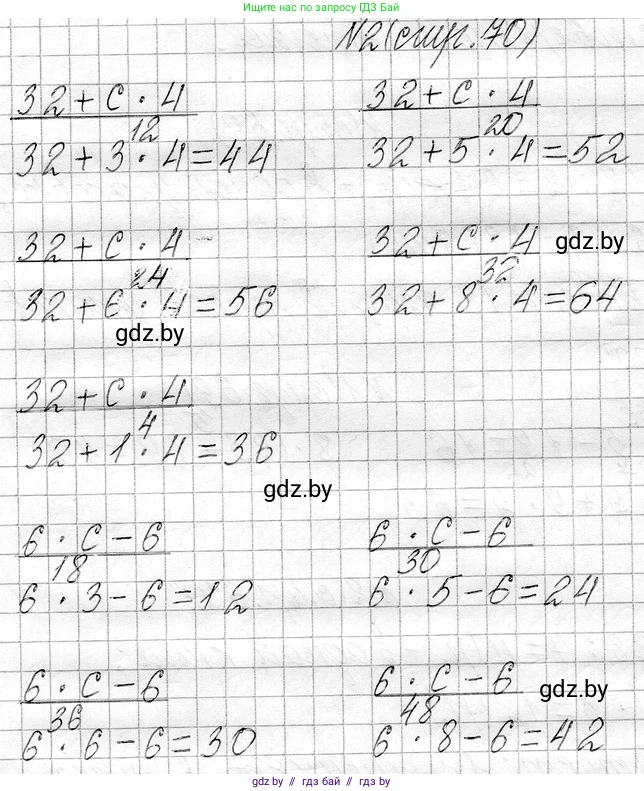 Ищите нас по запросу ГДЗ Бай
N2 (стр. 70)
32 + c · 4
12
32 + 3 · 4 = 44
32 + c · 4
20
32 + 5 · 4 = 52
32 + c · 4
24
32 + 6 · 4 = 56
gdz.by
32 + c · 4
gdz.by
32
32 + 8 · 4 = 64
32 + c · 4
4
32 + 1 · 4 = 36
gdz.by
6 · c - 6
18
6 · 3 - 6 = 12
6 · c - 6
30
6 · 5 - 6 = 24
6 · c - 6
36
6 · 6 - 6 = 30
6 · c - 6
gdz.by
48
6 · 8 - 6 = 42
gdz by // гдз бай // gdz by